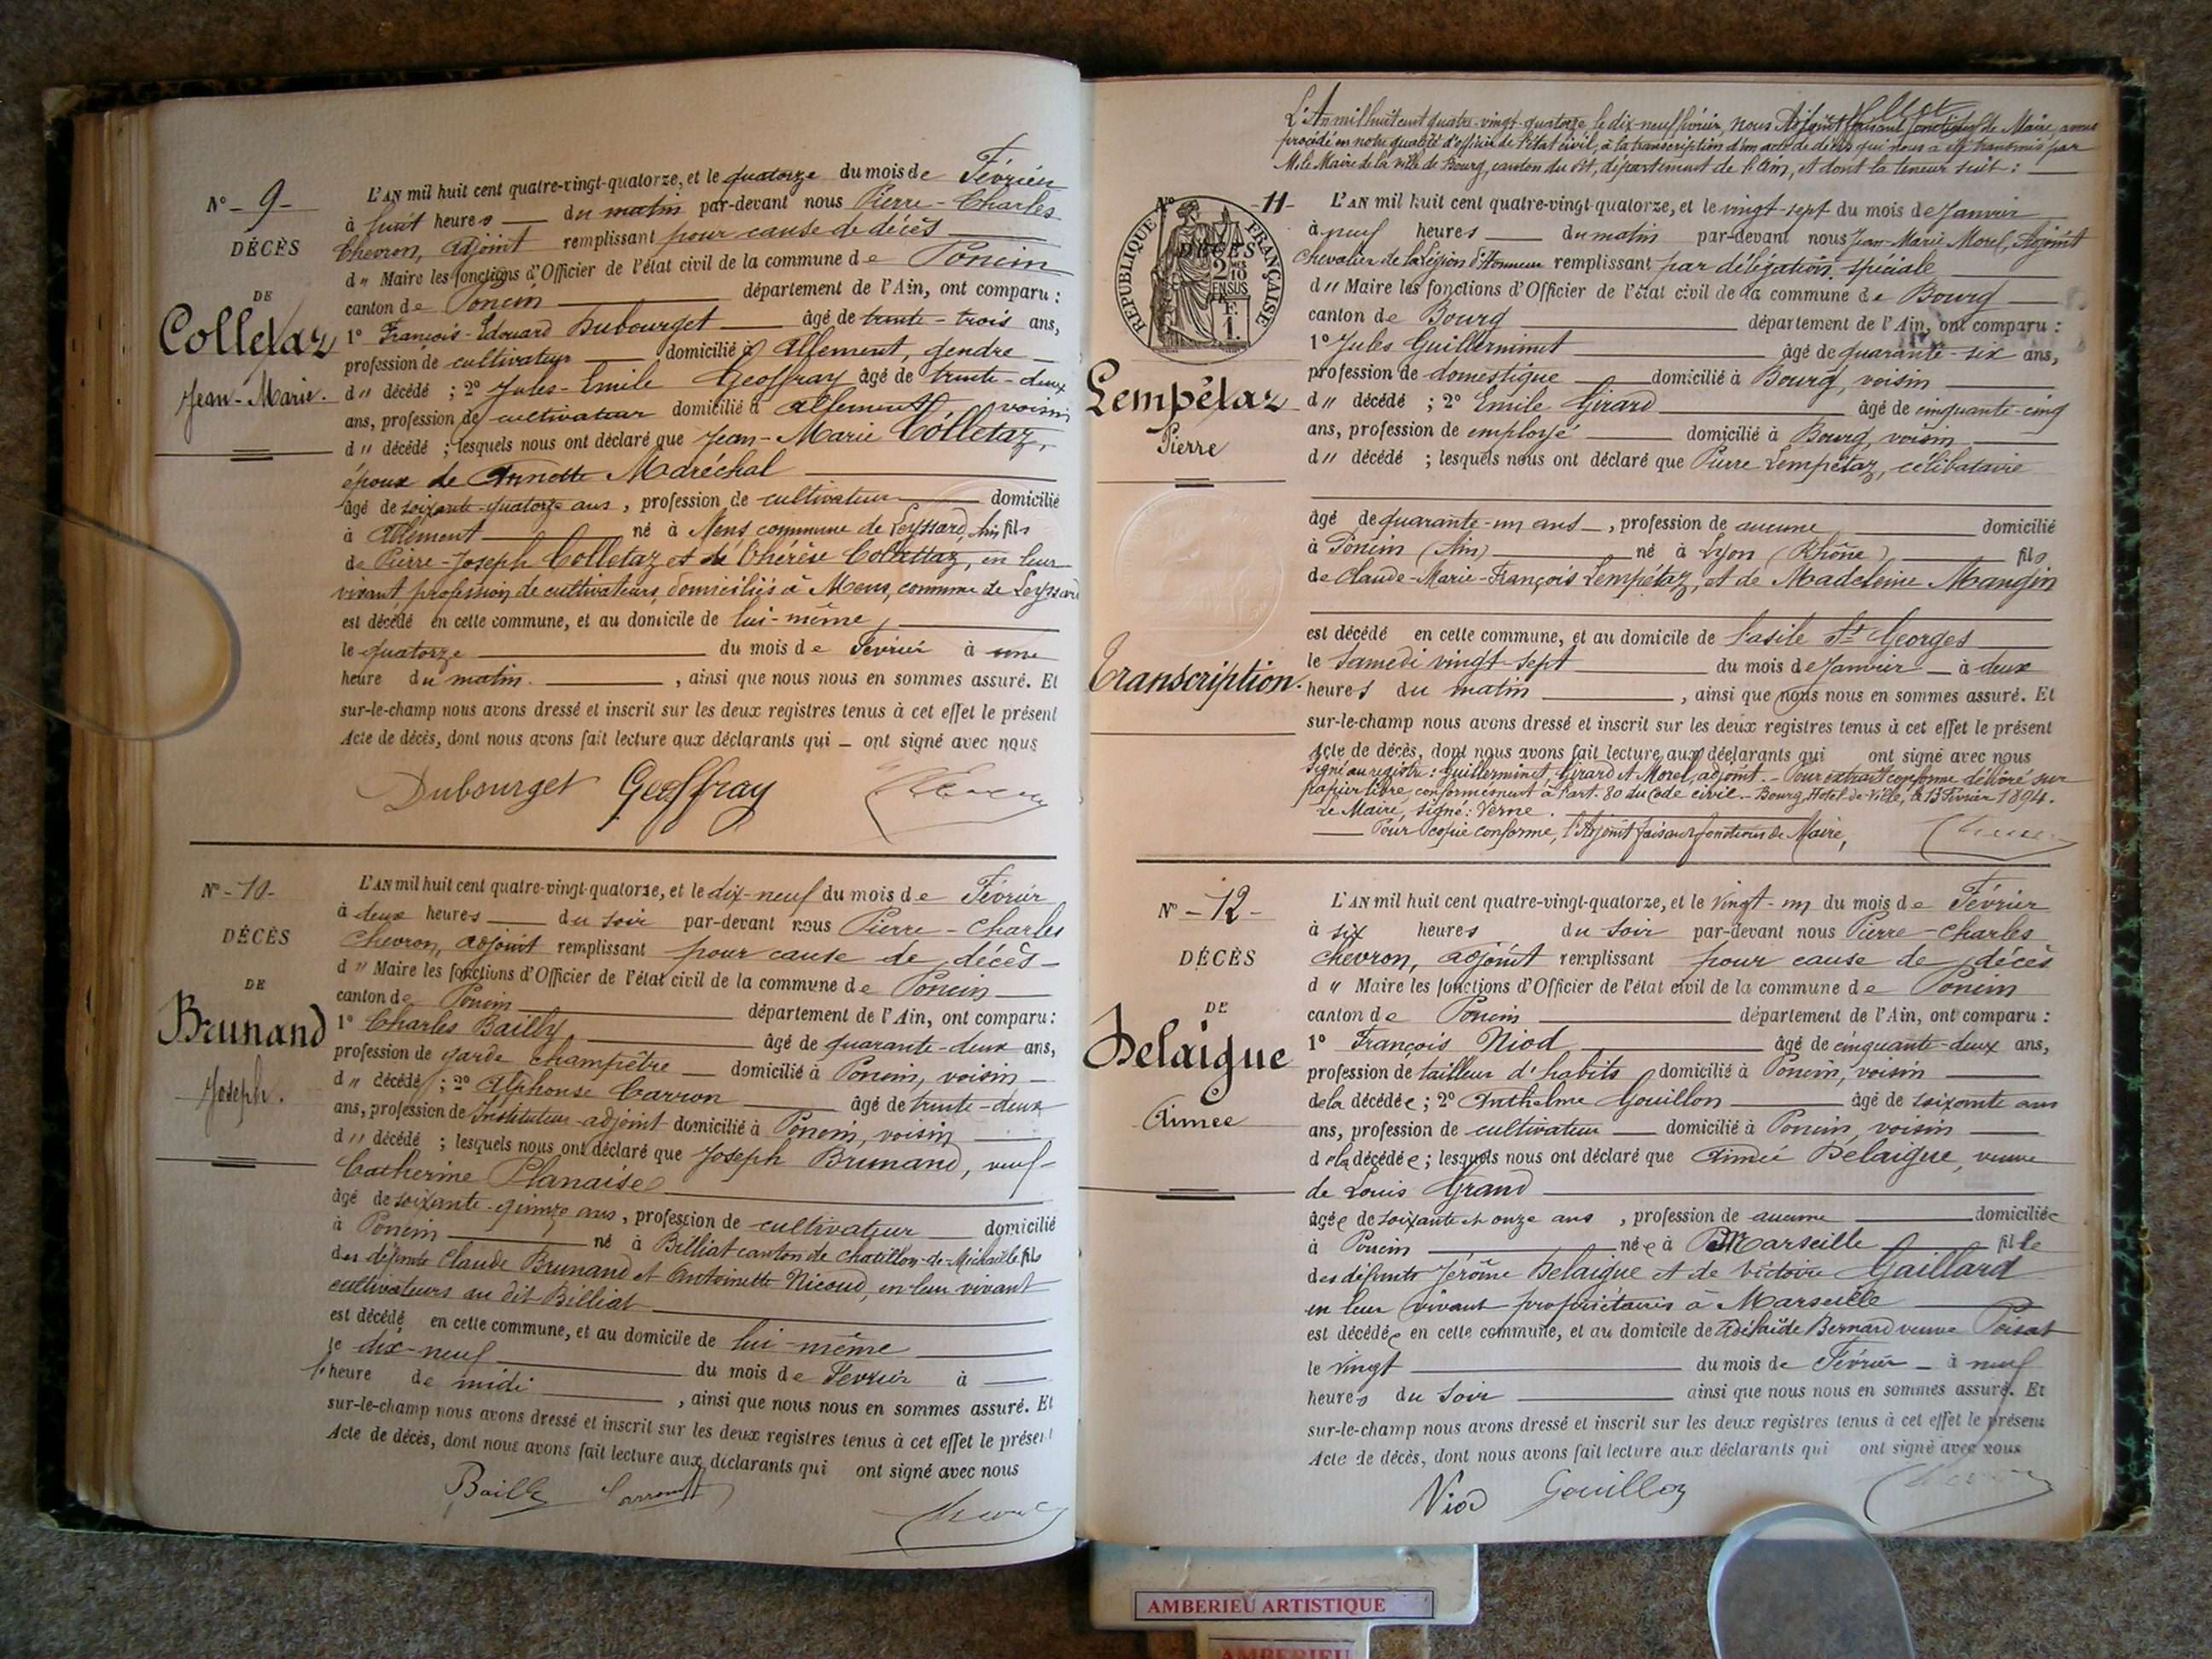 N° - 9 -
DÉCÈS
DE
Colletaz
Jean-Marie.
L'AN mil huit cent quatre-vingt-quatorze, et le quatorze du mois de Février
à huit heures du matin par-devant nous Pierre-Charles
Chevron, adjoint remplissant pour cause de décès
d" Maire les fonctions d'Officier de l'état civil de la commune de Poncin
canton de Poncin département de l'Ain, ont comparu :
1° François-Edouard Dubourget âgé de trente-trois ans,
profession de cultivateur domicilié à Allement, gendre
d" décédé ; 2° Jules-Emile Geoffray âgé de trente-deux
ans, profession de cultivateur domicilié à Allement, voisin
d" décédé ; lesquels nous ont déclaré que Jean-Marie Colletaz,
époux de Annette Maréchal
âgé de soixante-quatorze ans, profession de cultivateur domicilié
à Allement né à Mens commune de Leyssard, Ain fils
de Pierre-Joseph Colletaz et de Thérèse Collettaz, en leur
vivant, profession de cultivateurs, domiciliés à Mens, commune de Leyssard
est décédé en cette commune, et au domicile de lui-même,
le quatorze du mois de Février à une
heure du matin. , ainsi que nous nous en sommes assuré. Et
sur-le-champ nous avons dressé et inscrit sur les deux registres tenus à cet effet le présent
Acte de décès, dont nous avons fait lecture aux déclarants qui – ont signé avec nous
Dubourget Geoffray
N° - 10 -
DÉCÈS
DE
Brunand
Joseph.
L'AN mil huit cent quatre-vingt-quatorze, et le dix-neuf du mois de Février
à deux heures du soir par-devant nous Pierre-Charles
Chevron, adjoint remplissant pour cause de décès
d" Maire les fonctions d'Officier de l'état civil de la commune de Poncin
canton de Poncin département de l'Ain, ont comparu :
1° Charles Bailly âgé de quarante-deux ans,
profession de garde champêtre domicilié à Poncin, voisin
d" décédé ; 2° Alphonse Carron âgé de trente-deux
ans, profession de Instituteur-adjoint domicilié à Poncin, voisin
d" décédé ; lesquels nous ont déclaré que Joseph Brunand, veuf
Catherine Planaise
âgé de soixante-quinze ans, profession de cultivateur domicilié
à Poncin né à Billiat canton de Chatillon-de-Michaille fils
des défunts Claude Brunand et Antoinette Nicoud, en leur vivant
cultivateurs au dit Billiat
est décédé en cette commune, et au domicile de lui-même
le dix-neuf du mois de Février à
heure de midi , ainsi que nous nous en sommes assuré. Et
sur-le-champ nous avons dressé et inscrit sur les deux registres tenus à cet effet le présent
Acte de décès, dont nous avons fait lecture aux déclarants qui ont signé avec nous
Bailly
L'An mil huit cent quatre-vingt-quatorze le dix-neuf février, nous Adjoint faisant fonctions de Maire, avons
procédé en notre qualité d'officier de l'état civil, à la transcription d'un acte de décès qui nous a été transmis par
M. le Maire de la ville de Bourg, canton du dit, département de l'Ain, et dont la teneur suit :
N° - 11 -
RÉPUBLIQUE FRANÇAISE
DÉCÈS
2/10 EN SUS
F. 1.
Lempétaz
Pierre
Transcription.
L'AN mil huit cent quatre-vingt-quatorze, et le vingt-sept du mois de Janvier
à neuf heures du matin par-devant nous Jean-Marie Morel, Adjoint
Chevalier de la Légion d'Honneur remplissant par délégation spéciale
d" Maire les fonctions d'Officier de l'état civil de la commune de Bourg
canton de Bourg département de l'Ain, ont comparu :
1° Jules Guillerminet âgé de quarante-six ans,
profession de domestique domicilié à Bourg, voisin
d" décédé ; 2° Emile Girard âgé de cinquante-cinq
ans, profession de employé domicilié à Bourg, voisin
d" décédé ; lesquels nous ont déclaré que Pierre Lempétaz, célibataire
âgé de quarante-un ans , profession de aucune domicilié
à Poncin (Ain) né à Lyon (Rhône) fils
de Claude-Marie-François Lempétaz, et de Madeleine Mangin
est décédé en cette commune, et au domicile de l'asile St Georges
le Samedi vingt-sept du mois de Janvier à deux
heures du matin , ainsi que nous nous en sommes assuré. Et
sur-le-champ nous avons dressé et inscrit sur les deux registres tenus à cet effet le présent
Acte de décès, dont nous avons fait lecture aux déclarants qui ont signé avec nous
Signé au registre : Guillerminet, Girard et Morel, adjoint. – Pour extrait conforme délivré sur
papier libre conformément à l'art. 80 du Code civil. – Bourg, Hotel-de-Ville, le 13 Février 1894.
Le Maire, signé : Verne.
Pour copie conforme, l'Adjoint faisant fonctions de Maire,
N° - 12 -
DÉCÈS
DE
Delaigue
Aimée
L'AN mil huit cent quatre-vingt-quatorze, et le vingt-un du mois de Février
à six heures du soir par-devant nous Pierre-Charles
Chevron, adjoint remplissant pour cause de décès
d" Maire les fonctions d'Officier de l'état civil de la commune de Poncin
canton de Poncin département de l'Ain, ont comparu :
1° François Niod âgé de cinquante-deux ans,
profession de tailleur d'habits domicilié à Poncin, voisin
de la décédée ; 2° Anthelme Gouillon âgé de soixante ans
ans, profession de cultivateur domicilié à Poncin, voisin
de la décédée ; lesquels nous ont déclaré que Aimée Delaigue, veuve
de Louis Grand
âgée de soixante et onze ans , profession de aucune domiciliée
à Poncin née à Marseille fille
des défunts Jérôme Delaigue et de Victoire Gaillard
en leur vivant propriétaires à Marseille
est décédée en cette commune, et au domicile de Adélaïde Bernard veuve Poisat
le vingt du mois de Février à neuf
heures du soir ainsi que nous nous en sommes assuré. Et
sur-le-champ nous avons dressé et inscrit sur les deux registres tenus à cet effet le présent
Acte de décès, dont nous avons fait lecture aux déclarants qui ont signé avec nous
Niod Gouilloz
AMBERIEU ARTISTIQUE
AMBERIEU